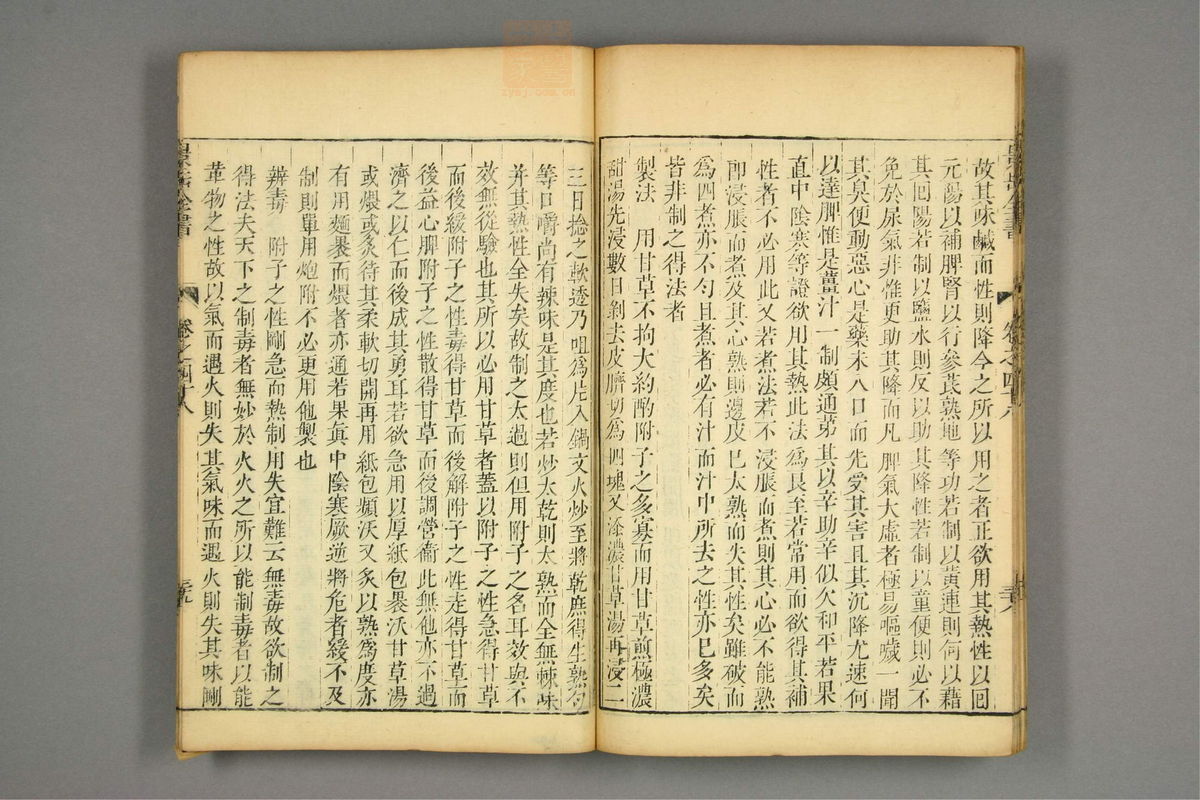 故其味鹹而性則降今之所以用之者正欲用其熱性以回
元陽以補脾腎以行參茋熟地等功若制以黃連則何以藉
其回陽若制以鹽水則反以助其降性若制以童便則必不
免於尿氣非惟更助其降而凡脾氣大虛者極易嘔噦一聞
其臭便動惡心是藥未入口而先受其害且其沉降尤速何
以達脾惟是薑汁一制頗通第其以辛助辛似欠和平若果
直中陰寒等證欲用其熱此法爲良至若常用而欲得其補
性者不必用此又若煮法若不浸脹而煮則其心必不能熟
即浸脹而煮及其心熟則邊皮巳太熟而失其性矣雖破而
爲四煮亦不勻且煮者必有汁而汁中所去之性亦巳多矣
皆非制之得法者
製法 用甘草不拘大約酌附子之多寡而用甘草煎極濃
甜湯先浸數日剝去皮臍切爲四塊又添濃甘草湯再浸二
卷之四十八
三日捻之軟透乃咀爲片入鍋文火炒至將乾庶得生熟勻
等口嚼尚有辣味是其度也若炒太乾則太熟而全無辣味
并其熱性全失矣故制之太過則但用附子之名耳效與不
效無從驗也其所以必用甘草者蓋以附子之性急得甘草
而後緩附子之性毒得甘草而後解附子之性走得甘草而
後益心脾附子之性散得甘草而後調營衞此無他亦不過
濟之以仁而後成其勇耳若欲急用以厚紙包裹沃甘草湯
或煨或炙待其柔軟切開再用紙包頻沃又炙以熟爲度亦
有用麵裹而煨者亦通若果眞中陰寒厥逆將危者緩不及
制則單用炮附不必更用他製也
辨毒 附子之性剛急而熱制用失宜難云無毒故欲制之
得法夫天下之制毒者無妙於火火之所以能制毒者以能
革物之性故以氣而遇火則失其氣味而遇火則失其味剛
景岳全書 卷之四十八